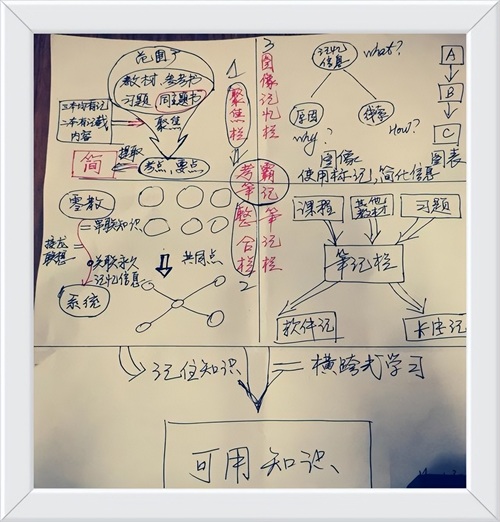 范围广
教材、参考书
习题 同主题书
聚焦
三本均有记
二本有记载
内容
提取
简
考点、要点
1
聚焦栏
3
图像记忆栏
记忆
信息
what?
原因
线索
why?
How?
图像
图表
使用标记,简化信息
A
B
C
考霸
笔记
零散
串联知识
接龙
联想
关联永久
记忆信息
系统
共同点
整合栏
2
笔记栏
课程
其他
教材
习题
笔记栏
软件记
卡片记
记住知识
横跨式学习
可用知识